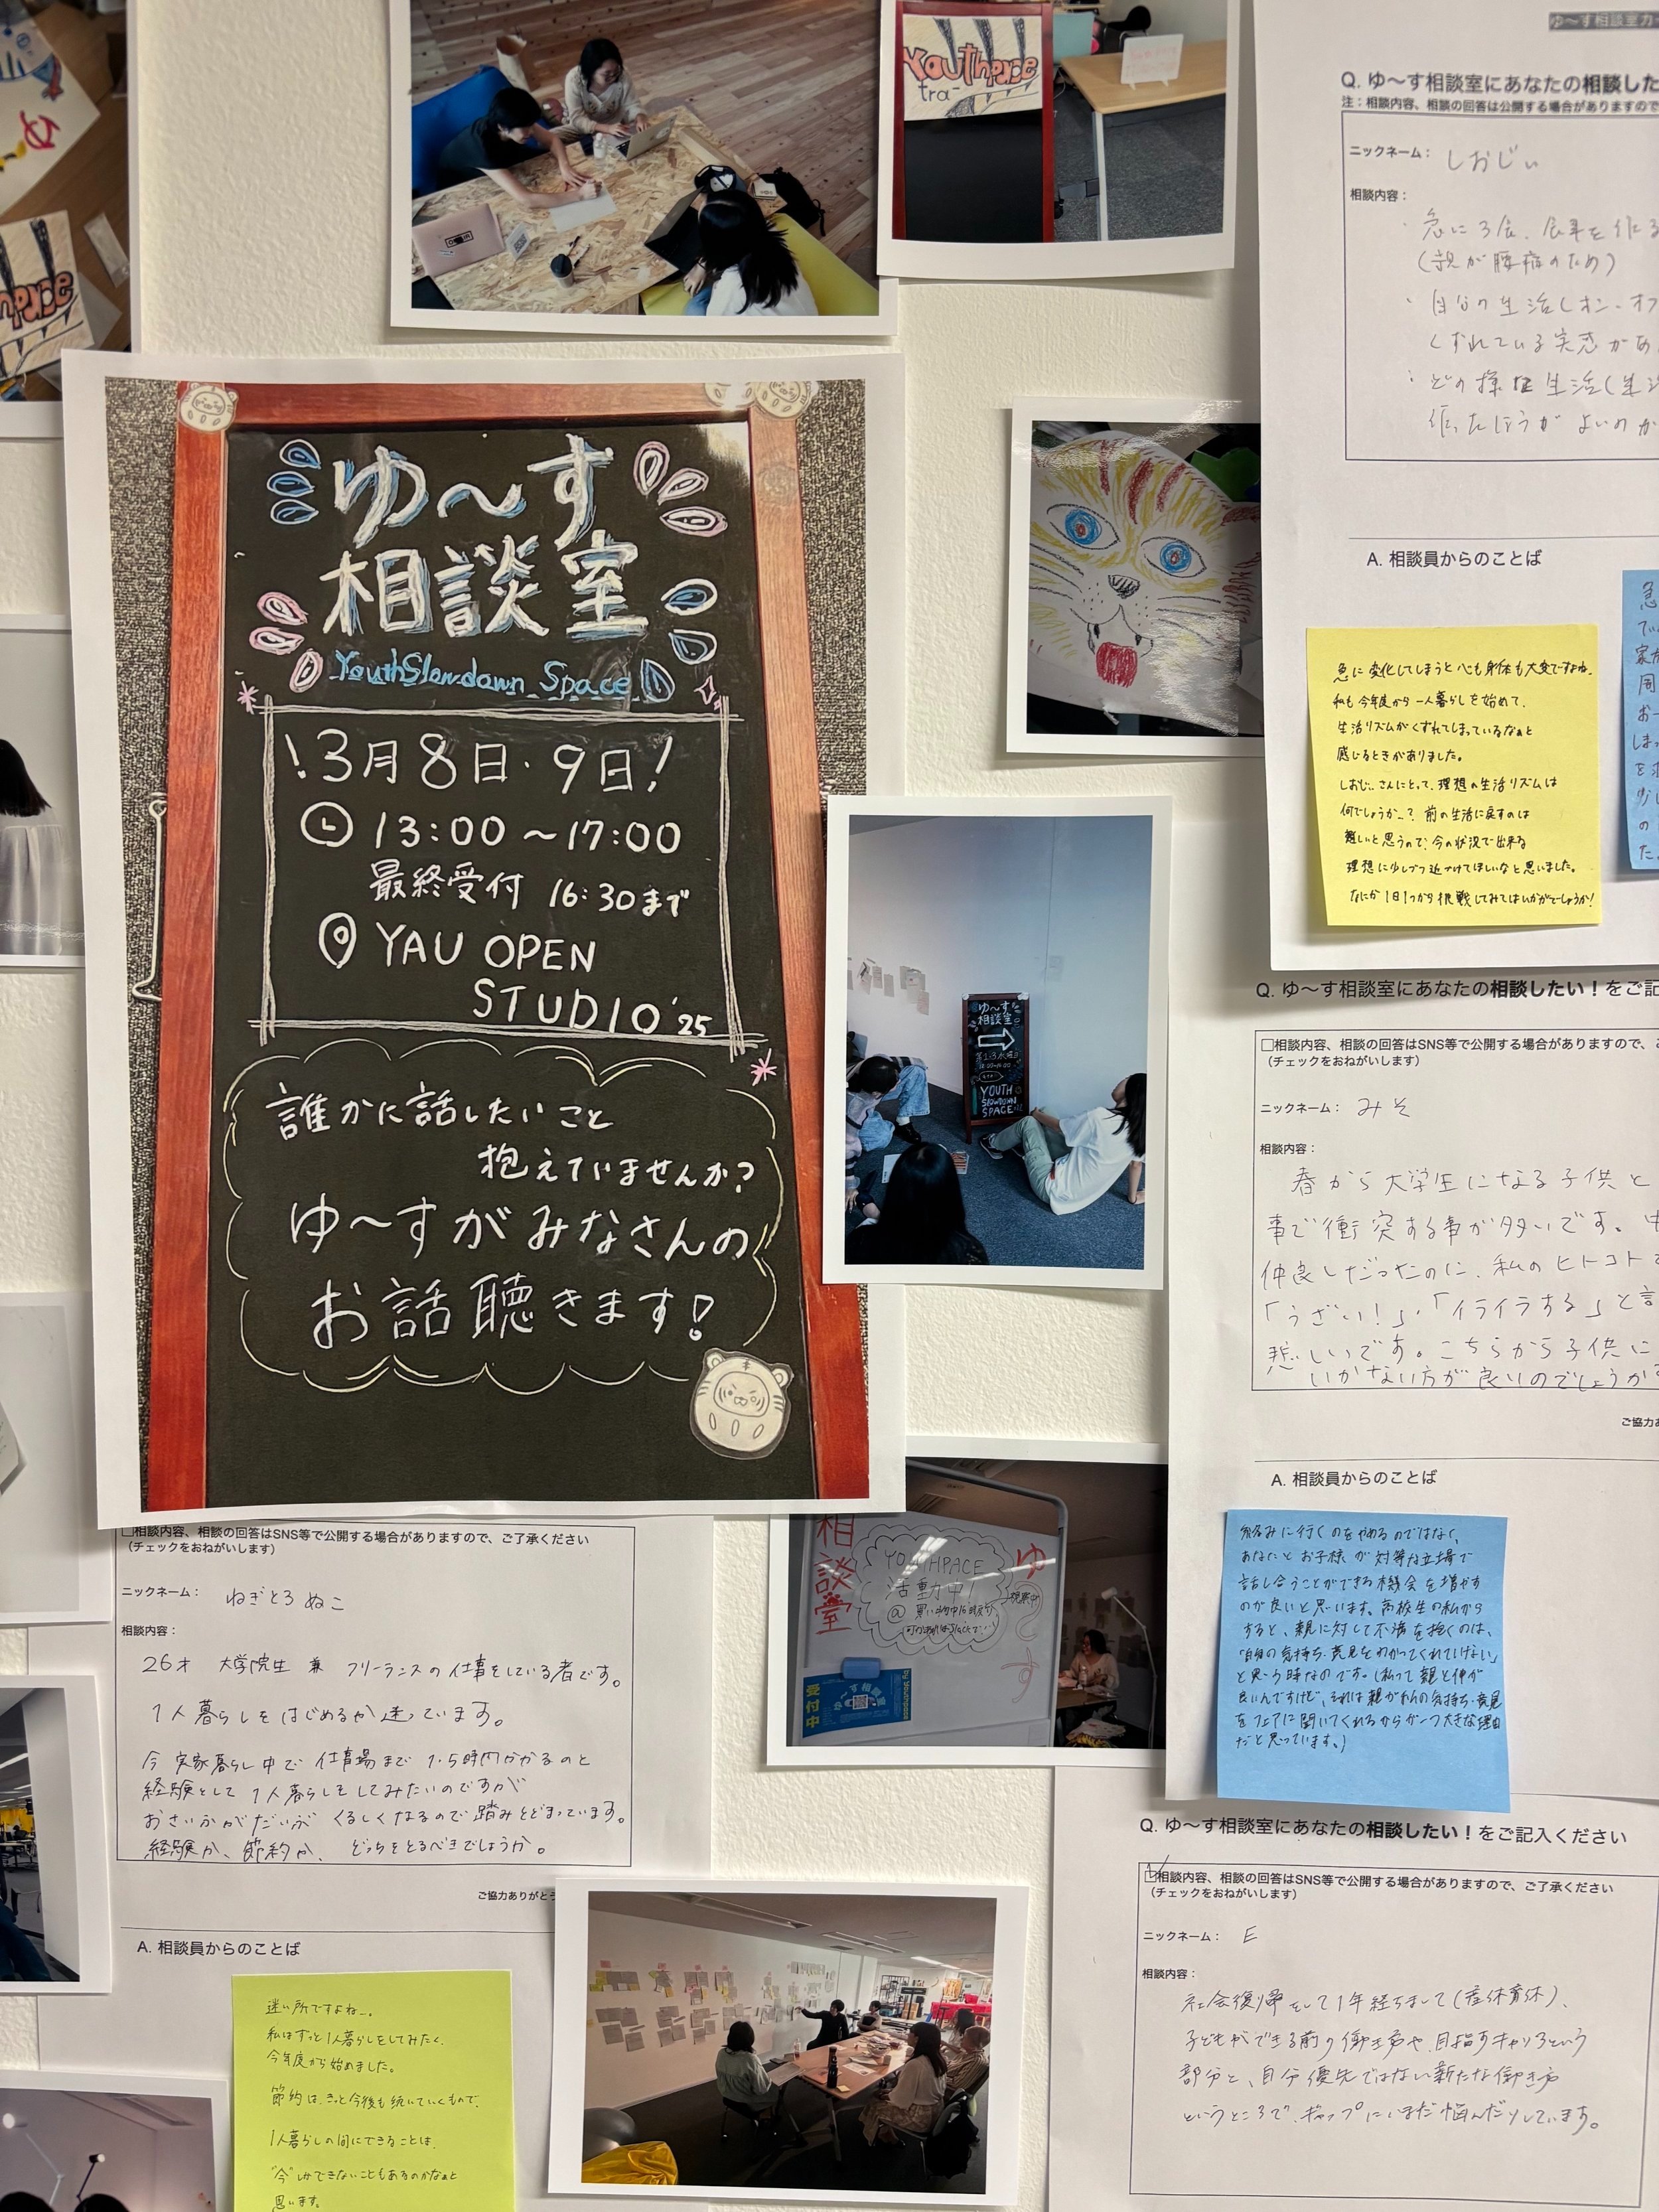 Youthpace
tra-
ゆ〜す
相談室
YouthSlowdown Space
!3月8日·9日!
13:00〜17:00
最終受付 16:30まで
YAU OPEN
STUDIO '25
誰かに話したいこと
抱えていませんか?
ゆ〜すがみなさんの
お話聴きます!
ゆ〜す相談室カ
Q. ゆ〜す相談室にあなたの相談した
注:相談内容、相談の回答は公開する場合がありますので
ニックネーム: しおじい
相談内容:
・急に3倍、
(親が腰痛のため)
・自分の生活しオン・オフ
くずれている実感があ
・どの様な生活(生活
作ったほうがよいのか
A. 相談員からのことば
急に変化してしまうと心も身体も大変ですよね。
私も今年度から一人暮らしを始めて、
生活リズムがくずれてしまっているなぁと
感じるときがありました。
しおじいさんにとって、理想の生活リズムは
何でしょうか…?前の生活に戻すのは
難しいと思うので、今の状況で出来る
理想に少しづつ近づけてほしいなと思いました。
なにか1日1つから挑戦してみてはいかがでしょうか!
ゆ〜す
相談室
YOUTH
SLOWDOWN
SPACE
Q. ゆ〜す相談室にあなたの相談したい!をご記
□相談内容、相談の回答はSNS等で公開する場合がありますので、ご
(チェックをおねがいします)
ニックネーム: みそ
相談内容:
春から大学生になる子供と
事で衝突する事が多いです。
仲良しだったのに、私のヒトコト
「うざい!」・「イライラする」と言
悲しいです。こちらから子供に
いかない方が良いのでしょうか
ご協力あ
A. 相談員からのことば
歩みに行くのをやめるのではなく、
あなたとお子様が対等な立場で
話し合うことができる機会を増やす
のが良いと思います。高校生の私から
すると、親に対して不満を抱くのは、
「自身の気持ち・意見をわかってくれていない」
と思う時なのです。(私って親と仲が
良いんですけど、それは親が私の気持ち・意見
をフェアに聞いてくれるからが一つ大きな理由
だと思っています。)
相談室
ゆ〜す
YOUTHPACE
活動中!
受付中
ゆ〜す相談室
by Youthpace
□相談内容、相談の回答はSNS等で公開する場合がありますので、ご了承ください
(チェックをおねがいします)
ニックネーム: ねぎとろぬこ
相談内容:
26才 大学院生 兼 フリーランスの仕事をしている者です。
1人暮らしをはじめるか迷っています。
今実家暮らし中で仕事場まで1.5時間かかるのと
経験として1人暮らしをしてみたいのですが
おさいふがだいぶくるしくなるので踏みとどまっています。
経験か、節約か、どっちをとるべきでしょうか。
ご協力ありがとう
A. 相談員からのことば
迷い所ですよね…。
私はずっと1人暮らしをしてみたく、
今年度から始めました。
節約は、きっと今後も続いていくもので、
1人暮らしの間にできることは、
"今"しかできないこともあるのかなぁと
思います。
Q. ゆ〜す相談室にあなたの相談したい!をご記入ください
☑相談内容、相談の回答はSNS等で公開する場合がありますので、ご了承ください
(チェックをおねがいします)
ニックネーム: E
相談内容:
社会復帰をして1年経ちまして(産休育休)、
子どもができる前の働き方や、目指すキャリアという
部分と、自分優先ではない新たな働き方
というところで、ギャップにいまだ悩んだりしています。